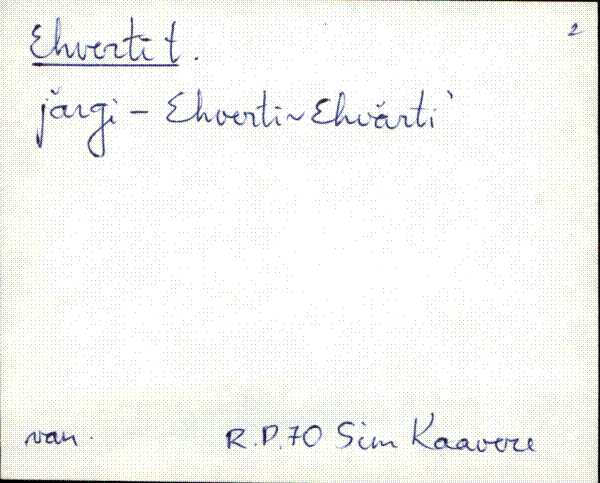 2
Ehverti t.
järgi - Ehverti ~ Ehvärti`
van.
R.P.70 Sim Kaavere